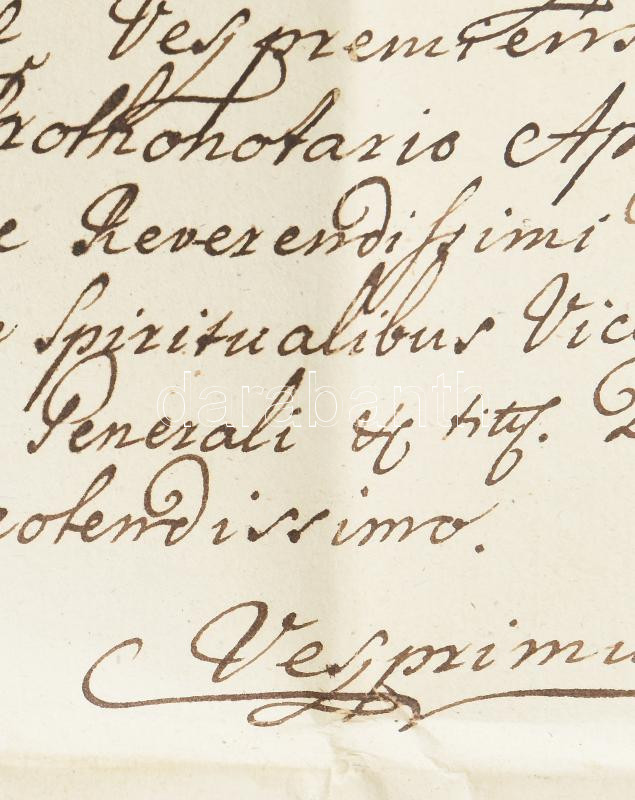 Veszpremiens
rothonotario Ap
e Reverendissimi
Spiritualibus Vica
Generali & titt.
colendissimo.
Veszprimu
darabanth